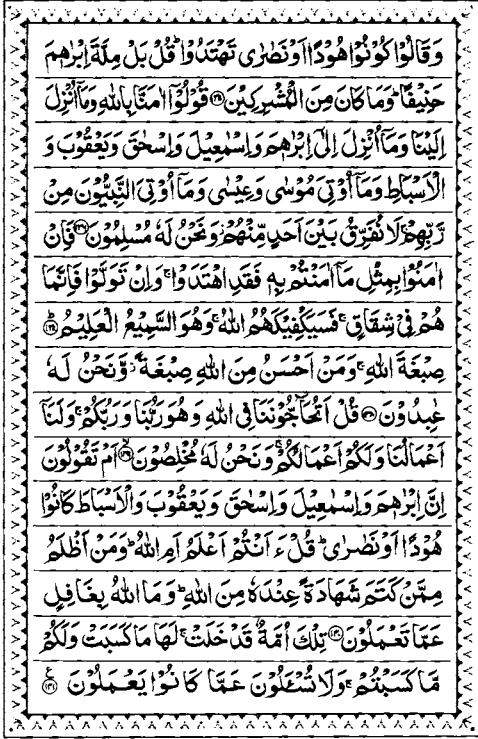 وَقَالُوْا كُوْنُوْا هُوْدًا اَوْ نَصٰرٰى تَهْتَدُوْا ؕ قُلْ بَلْ مِلَّةَ اِبْرٰهٖمَ
حَنِيْفًا ؕ وَمَا كَانَ مِنَ الْمُشْرِكِيْنَ ۝ قُوْلُوْۤا اٰمَنَّا بِاللّٰهِ وَمَاۤ اُنْزِلَ
اِلَيْنَا وَمَاۤ اُنْزِلَ اِلٰٓى اِبْرٰهٖمَ وَاِسْمٰعِيْلَ وَاِسْحٰقَ وَيَعْقُوْبَ وَ
الْاَسْبَاطِ وَمَاۤ اُوْتِىَ مُوْسٰى وَعِيْسٰى وَمَاۤ اُوْتِىَ النَّبِيُّوْنَ مِنْ
رَّبِّهِمْ ۚ لَا نُفَرِّقُ بَيْنَ اَحَدٍ مِّنْهُمْ ۖ وَنَحْنُ لَهٗ مُسْلِمُوْنَ ۝ فَاِنْ
اٰمَنُوْا بِمِثْلِ مَاۤ اٰمَنْتُمْ بِهٖ فَقَدِ اهْتَدَوْا ۚ وَاِنْ تَوَلَّوْا فَاِنَّمَا
هُمْ فِىْ شِقَاقٍ ۚ فَسَيَكْفِيْكَهُمُ اللّٰهُ ۚ وَهُوَ السَّمِيْعُ الْعَلِيْمُ ۝
صِبْغَةَ اللّٰهِ ۚ وَمَنْ اَحْسَنُ مِنَ اللّٰهِ صِبْغَةً ۫ وَّنَحْنُ لَهٗ
عٰبِدُوْنَ ۝ قُلْ اَتُحَآجُّوْنَنَا فِى اللّٰهِ وَهُوَ رَبُّنَا وَرَبُّكُمْ ۚ وَلَنَاۤ
اَعْمَالُنَا وَلَكُمْ اَعْمَالُكُمْ ۚ وَنَحْنُ لَهٗ مُخْلِصُوْنَ ۝ اَمْ تَقُوْلُوْنَ
اِنَّ اِبْرٰهٖمَ وَاِسْمٰعِيْلَ وَاِسْحٰقَ وَيَعْقُوْبَ وَالْاَسْبَاطَ كَانُوْا
هُوْدًا اَوْ نَصٰرٰى ؕ قُلْ ءَاَنْتُمْ اَعْلَمُ اَمِ اللّٰهُ ؕ وَمَنْ اَظْلَمُ
مِمَّنْ كَتَمَ شَهَادَةً عِنْدَهٗ مِنَ اللّٰهِ ؕ وَمَا اللّٰهُ بِغَافِلٍ
عَمَّا تَعْمَلُوْنَ ۝ تِلْكَ اُمَّةٌ قَدْ خَلَتْ ۚ لَهَا مَا كَسَبَتْ وَلَكُمْ
مَّا كَسَبْتُمْ ۚ وَلَا تُسْـَٔلُوْنَ عَمَّا كَانُوْا يَعْمَلُوْنَ ۝